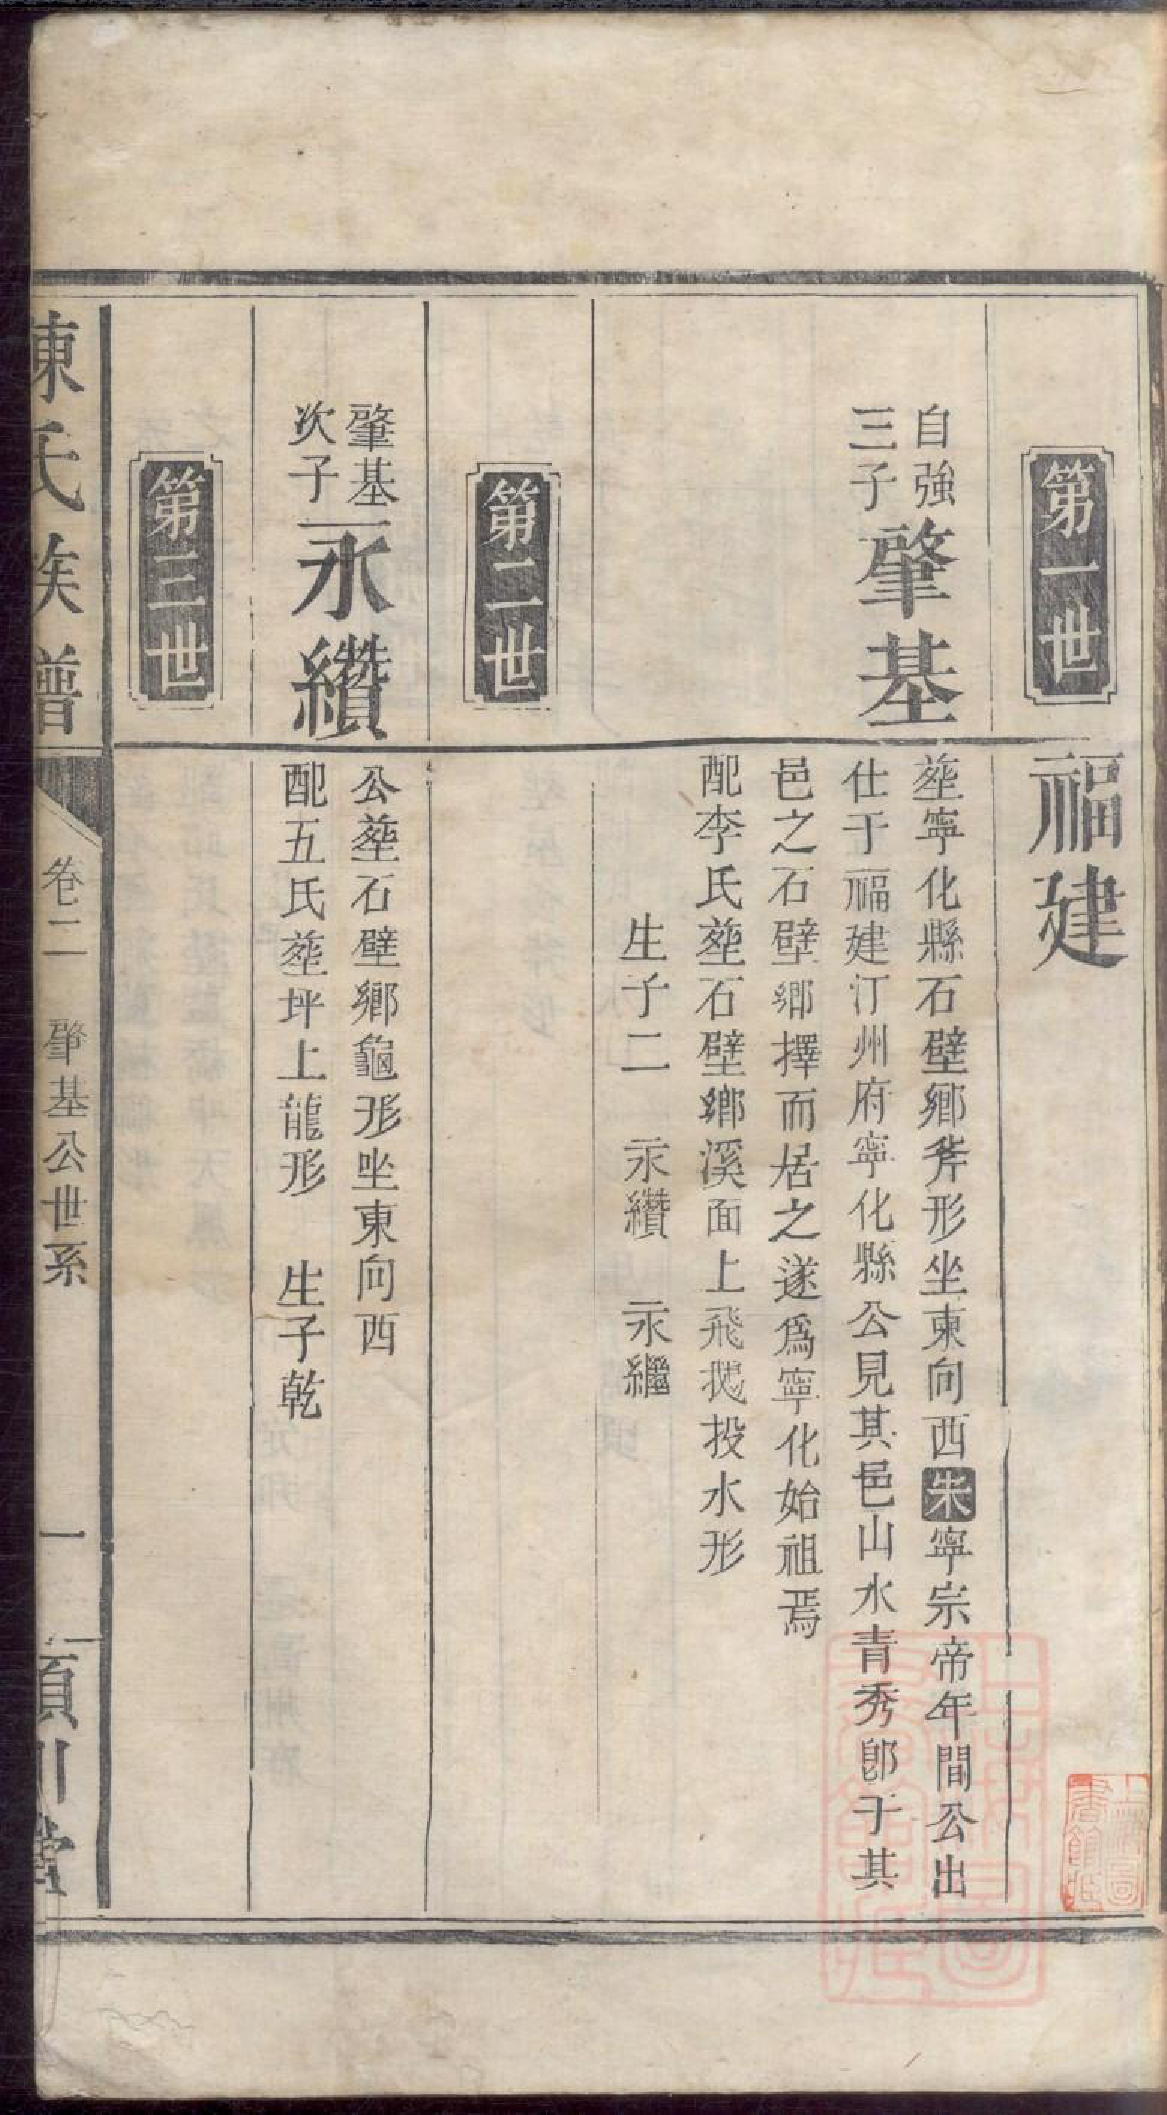 第一世
福建
自強
三子
肇基
塟寧化縣石壁鄉斧形坐東向西宋寧宗帝年間公出
仕于福建汀州府寧化縣公見其邑山水青秀卽于其
邑之石壁鄉擇而居之遂爲寧化始祖焉
配李氏塟石壁鄉溪面上飛鵞投水形
生子二 永纘 永繼
第二世
肇基
次子
永纘
公塟石壁鄉龜形坐東向西
配五氏塟坪上龍形 生子乾
第三世
陳氏族譜
卷二 肇基公世系
一
潁川堂
上海圖書館藏
上海圖書館藏